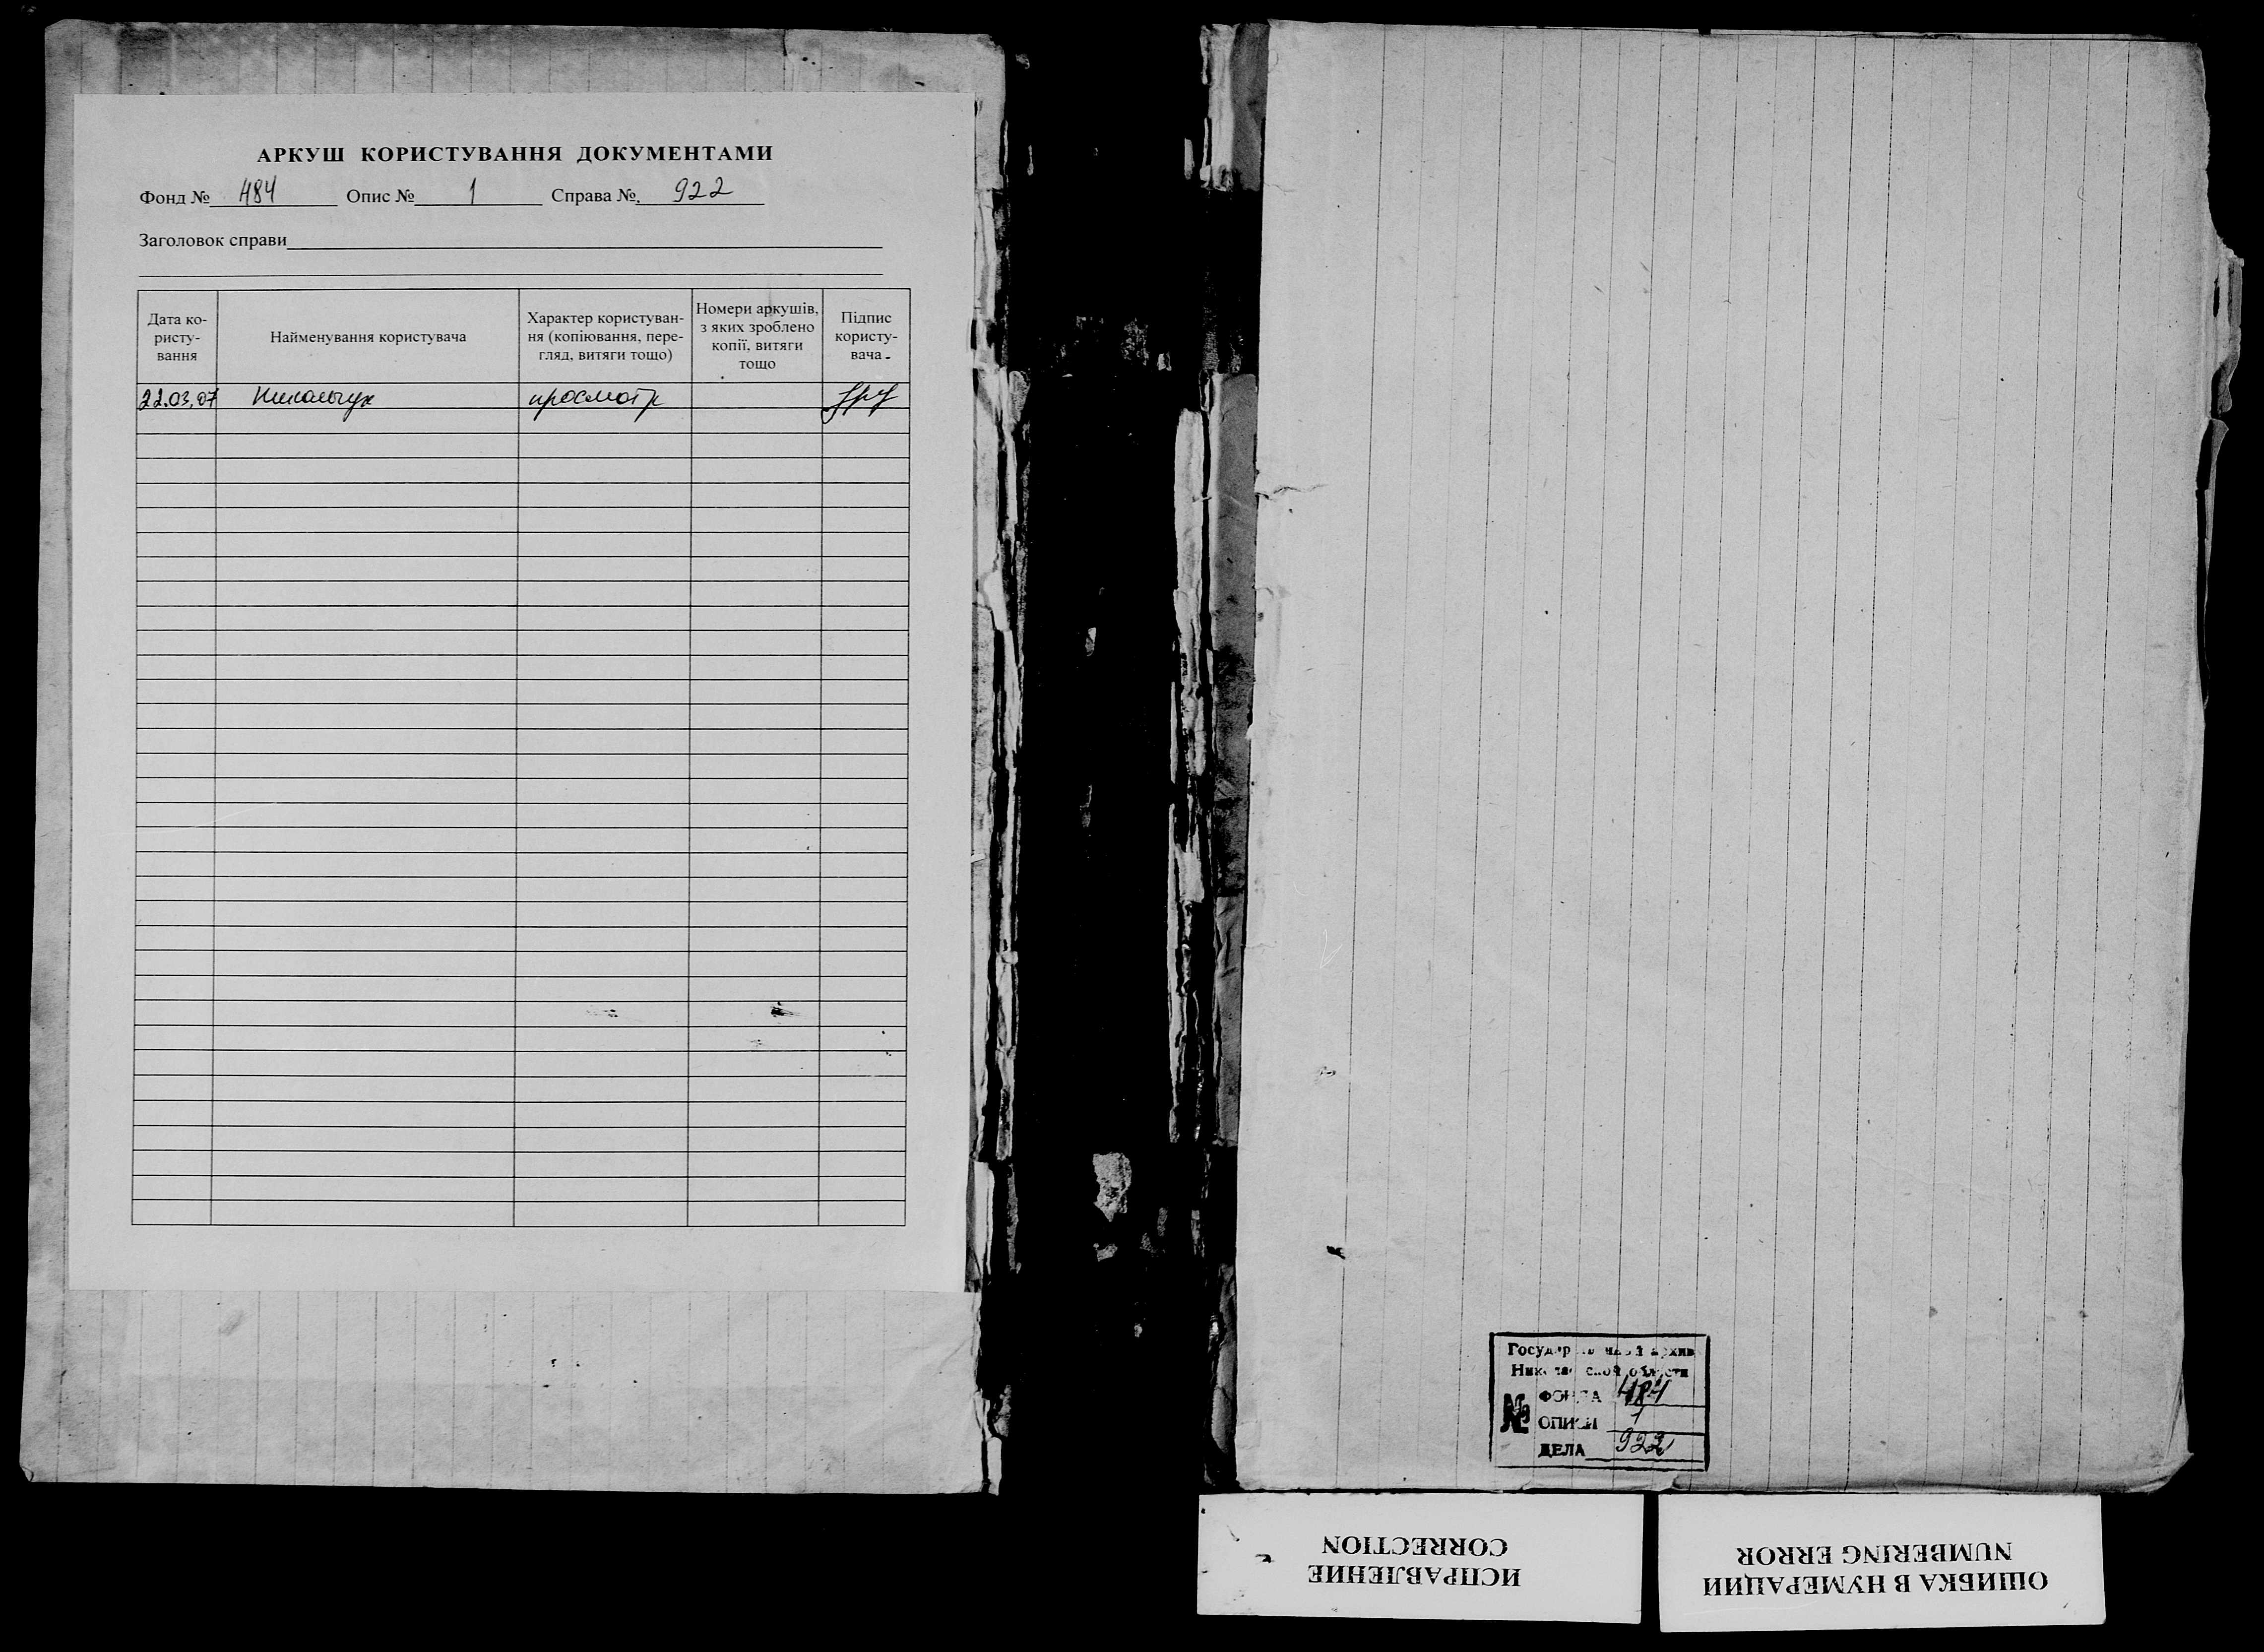 АРКУШ КОРИСТУВАННЯ ДОКУМЕНТАМИ
Фонд № 484 Опис № 1 Справа № 922
Заголовок справи
Дата ко-
ристу-
вання
Найменування користувача
Характер користуван-
ня (копіювання, пере-
гляд, витяги тощо)
Номери аркушів,
з яких зроблено
копії, витяги
тощо
Підпис
користу-
вача
22.03.07 просмотр
Государственный архив
Николаевской области
№ ФОНДА 484
ОПИСИ 1
ДЕЛА 922
ИСПРАВЛЕНИЕ
CORRECTION
ОШИБКА В НУМЕРАЦИИ
NUMBERING ERROR